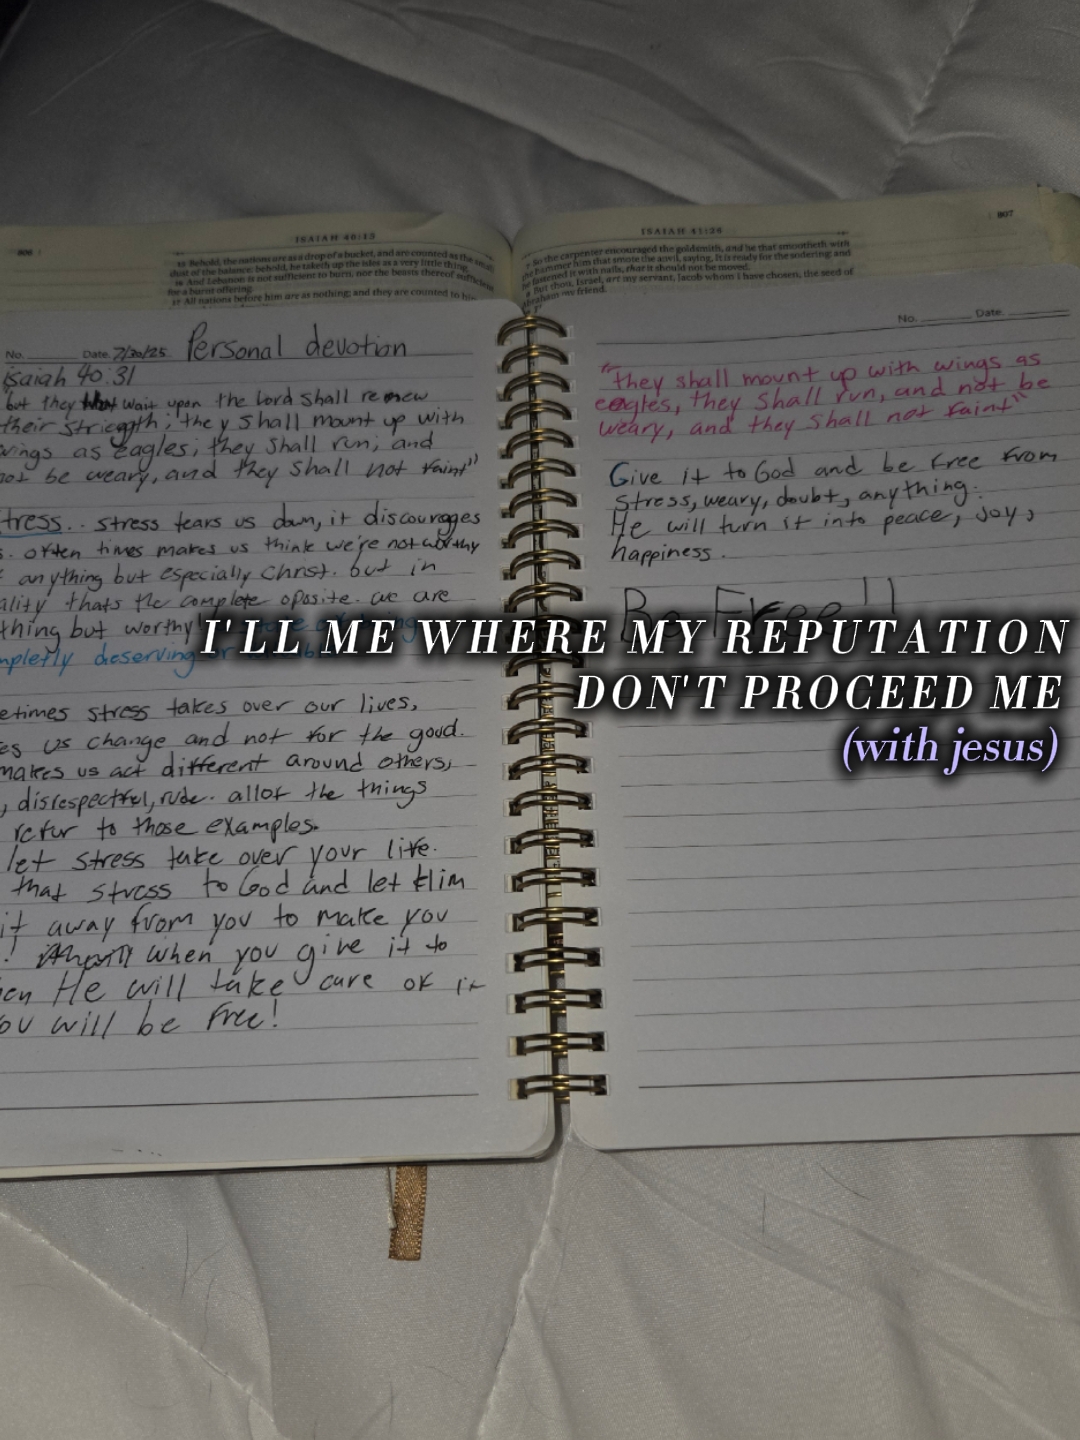 ISAIAH 40:15
15 Behold, the nations are as a drop of a bucket, and are counted as the small
dust of the balance: behold, he taketh up the isles as a very little thing.
16 And Lebanon is not sufficient to burn, nor the beasts thereof sufficient
for a burnt offering.
17 All nations before him are as nothing; and they are counted to him
807
So the carpenter encouraged the goldsmith, and he that smootheth with
the hammer him that smote the anvil, saying, It is ready for the sodering: and
he fastened it with nails, that it should not be moved.
8 But thou, Israel, art my servant, Jacob whom I have chosen, the seed of
Abraham my friend.
No. Date. 7/30/25 Personal devotion
isaiah 40:31
but they wait upon the lord shall renew
their striength; they shall mount up with
wings as eagles; they shall run, and
not be weary, and they shall not faint"
tress.. stress tears us down, it discourages
s. often times makes us think we're not worthy
anything but especially Christ. but in
ality thats the complete oposite. we are
thing but worthy!
mpletly deserving
etimes stress takes over our lives,
es us change and not for the good.
makes us act different around others,
, disrespectful, rude. allot the things
refur to those examples.
let stress take over your life.
that stress to God and let Him
it away from you to make you
! when you give it to
en He will take care of it
ou will be free!
No. Date.
"they shall mount up with wings as
eagles, they shall run, and not be
weary, and they shall not faint"
Give it to God and be free from
stress, weary, doubt, anything.
He will turn it into peace, joy,
happiness.
Be Free!!
I'LL ME WHERE MY REPUTATION
DON'T PROCEED ME
(with jesus)